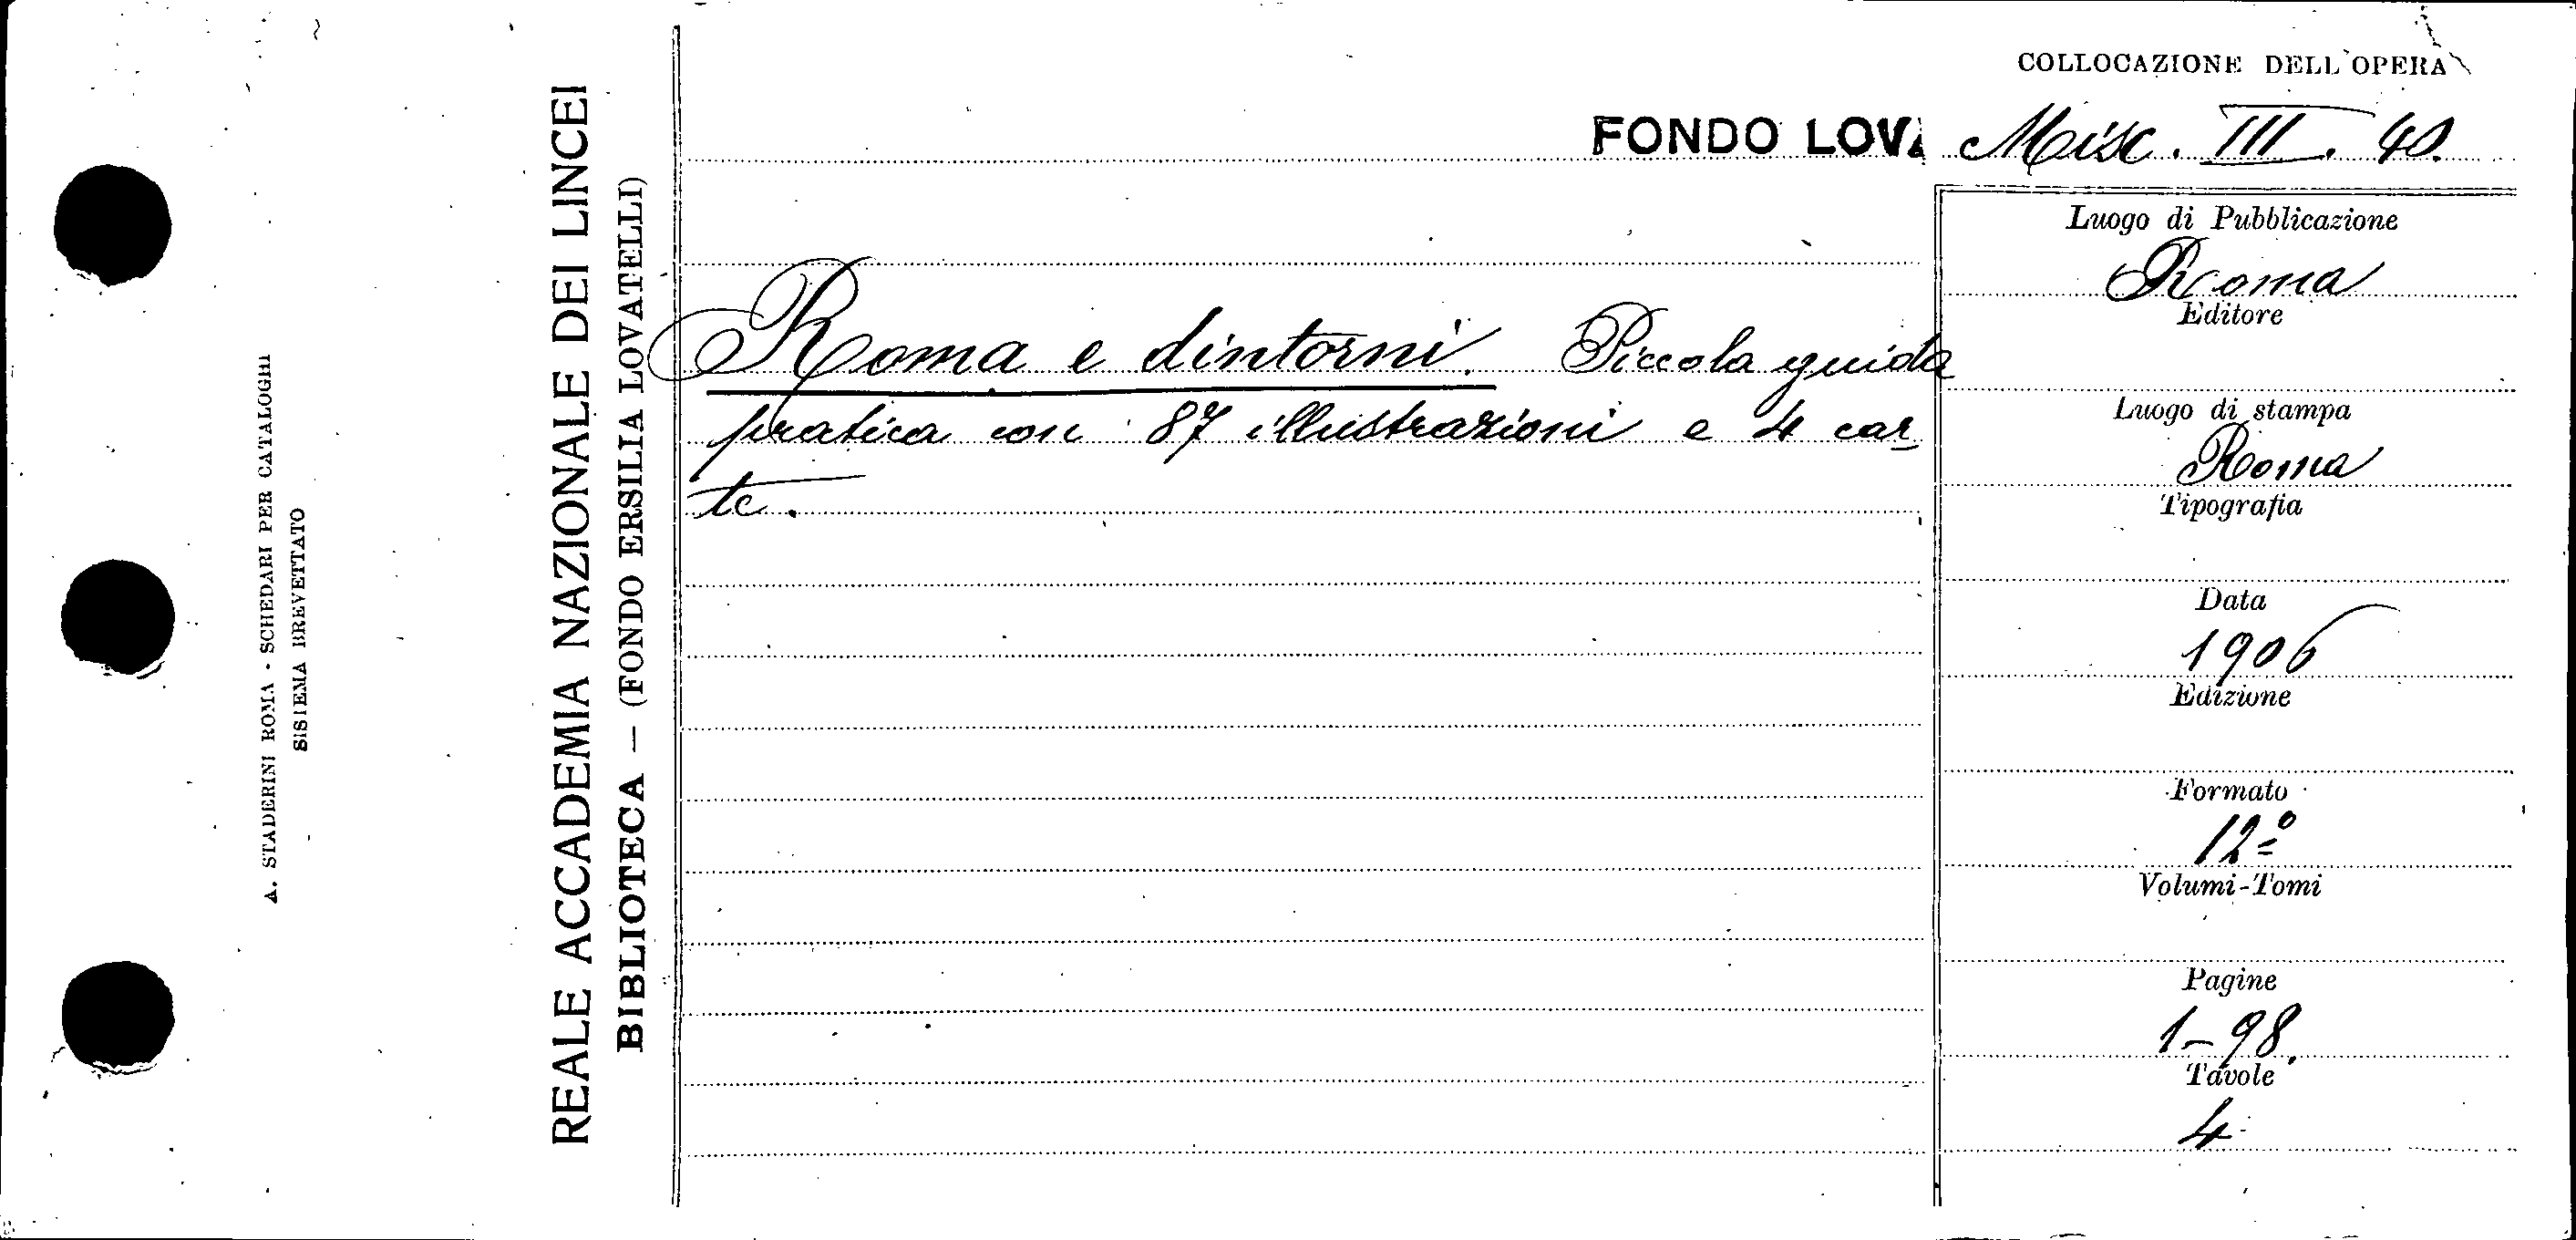 A. STADERINI ROMA - SCHEDARI PER CATALOGHI
SISTEMA BREVETTATO
REALE ACCADEMIA NAZIONALE DEI LINCEI
BIBLIOTECA — (FONDO ERSILIA LOVATELLI)
COLLOCAZIONE DELL'OPERA
FONDO LOVA Misc. III. 40.
Roma e dintorni. Piccola guida
pratica con 87 illustrazioni e 4 car
te.
Luogo di Pubblicazione
Roma
Editore
Luogo di stampa
Roma
Tipografia
Data
1906
Edizione
Formato
12º
Volumi-Tomi
Pagine
1-98.
Tavole
4